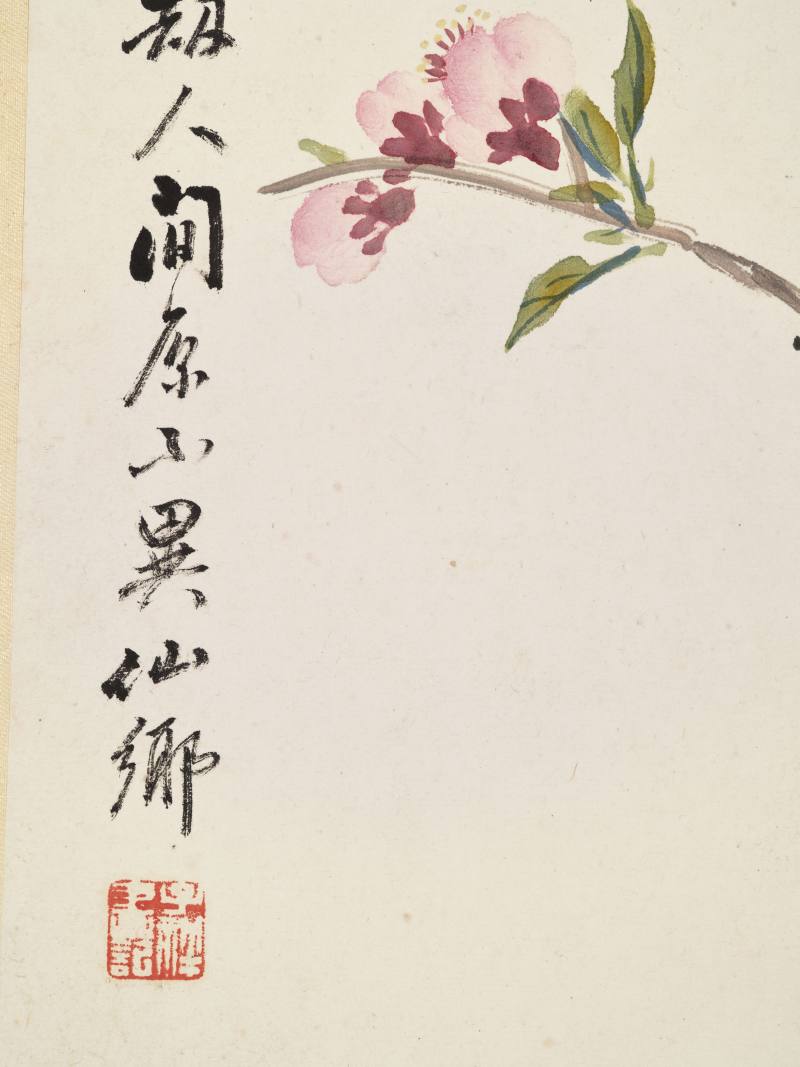 人間原不異仙鄉